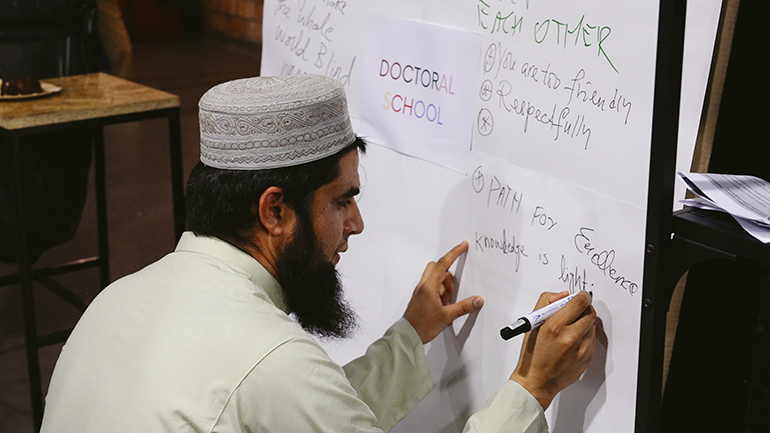 The whole
World Blind
DOCTORAL
SCHOOL
EACH OTHER
you are too friendly
Respectfully
PATH FOR Excellence
Knowledge is light